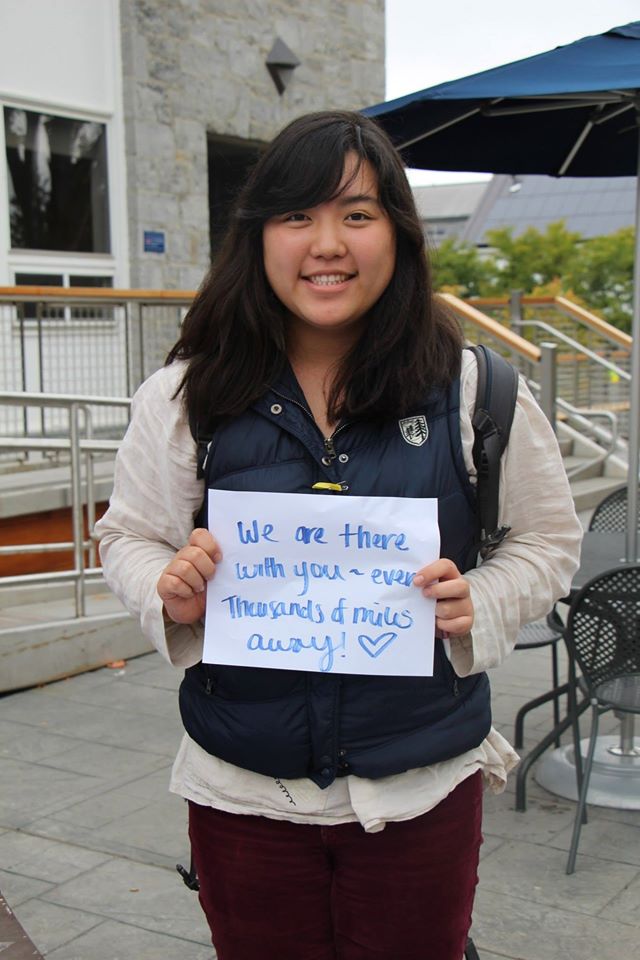 We are there
with you ~ even
Thousands of miles
away! ♡